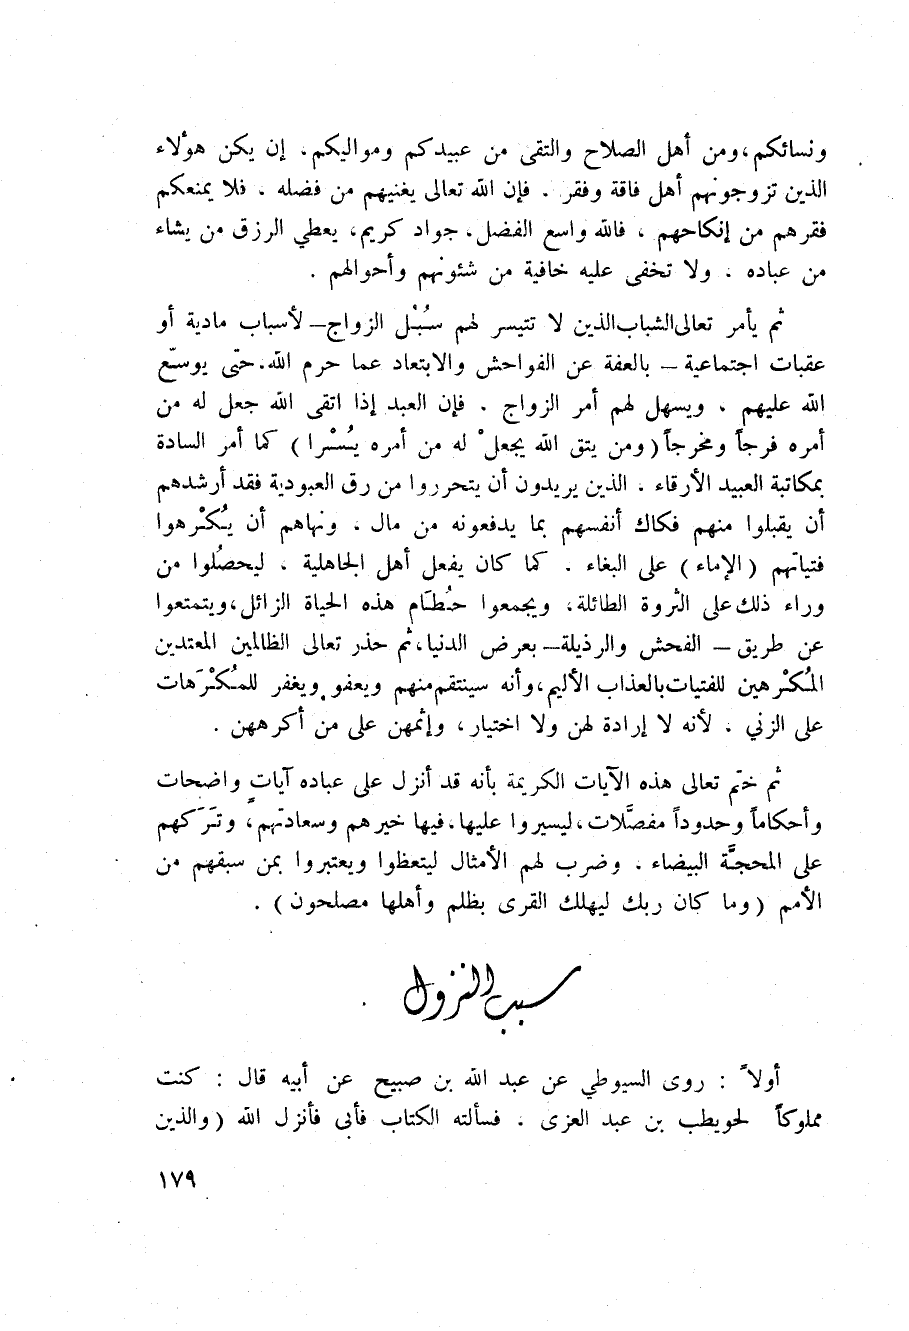 ونسائكم، ومن أهل الصلاح والتقى من عبيدكم ومواليكم، إن يكن هؤلاء
الذين تزوجونهم أهل فاقة وفقر، فإن الله تعالى يغنيهم من فضله، فلا يمنعكم
فقرهم من إنكاحهم، فالله واسع الفضل، جواد كريم، يعطي الرزق من يشاء
من عباده، ولا تخفى عليه خافية من شئونهم وأحوالهم.
ثم يأمر تعالى الشباب الذين لا تتيسر لهم سُبُل الزواج – لأسباب مادية أو
عقبات اجتماعية – بالعفة عن الفواحش والابتعاد عما حرم الله، حتى يوسّع
الله عليهم، ويسهل لهم أمر الزواج، فإن العبد إذا اتقى الله جعل له من
أمره فرجاً ومخرجاً (ومن يتق الله يجعلْ له من أمره يُسْرا) كما أمر السادة
بمكاتبة العبيد الأرقاء، الذين يريدون أن يتحرروا من رق العبودية فقد أرشدهم
أن يقبلوا منهم فكاك أنفسهم بما يدفعونه من مال، ونهاهم أن يُكْرهوا
فتياتهم (الإماء) على البغاء، كما كان يفعل أهل الجاهلية، ليحصُلوا من
وراء ذلك على الثروة الطائلة، ويجمعوا حُطَام هذه الحياة الزائل، ويتمتعوا
عن طريق – الفحش والرذيلة – بعرض الدنيا، ثم حذر تعالى الظالمين المعتدين
المُكْرهين للفتيات بالعذاب الأليم، وأنه سينتقم منهم ويعفو ويغفر للمُكْرَهات
على الزنى، لأنه لا إرادة لهن ولا اختيار، وإثمهن على من أكرههن.
ثم ختم تعالى هذه الآيات الكريمة بأنه قد أنزل على عباده آياتٍ واضحات
وأحكاماً وحدوداً مفصَّلات، ليسيروا عليها، فيها خيرهم وسعادتهم، وتَرَكهم
على المحجَّة البيضاء، وضرب لهم الأمثال ليتعظوا ويعتبروا بمن سبقهم من
الأمم (وما كان ربك ليهلك القرى بظلم وأهلها مصلحون).
سبب النزول
أولاً : روى السيوطي عن عبد الله بن صبيح عن أبيه قال : كنت
مملوكاً لحويطب بن عبد العزى، فسألته الكتاب فأبى فأنزل الله (والذين
١٧٩